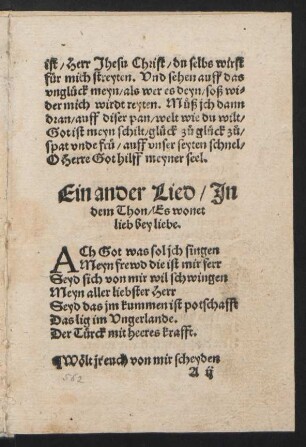 ist/ Herr Jhesu Christ/ du selbs wirst
für mich streyten. Und sehen auff das
unglück meyn/ als wer es deyn/ soß wi-
der mich wirdt reyten. Müß jch dann
dran/ auff diser pan/ welt wie du wilt/
Got ist meyn schilt/ glück zů glück zů/
spat unde frů/ auff unser seyten schnel/
O Herre Got hilff meyner seel.
Ein ander Lied/ In
dem Thon/ Es wonet
lieb bey liebe.
ACh Got was sol jch singen
Meyn frewd die ist mir ferr
Seyd sich von mir wil schwingen
Meyn aller liebster Herr
Seyd das jm kummen ist potschafft
Das lig im Ungerlande.
Der Türck mit heeres krafft.
¶ Wölt jr euch von mir scheyden
A ij
562